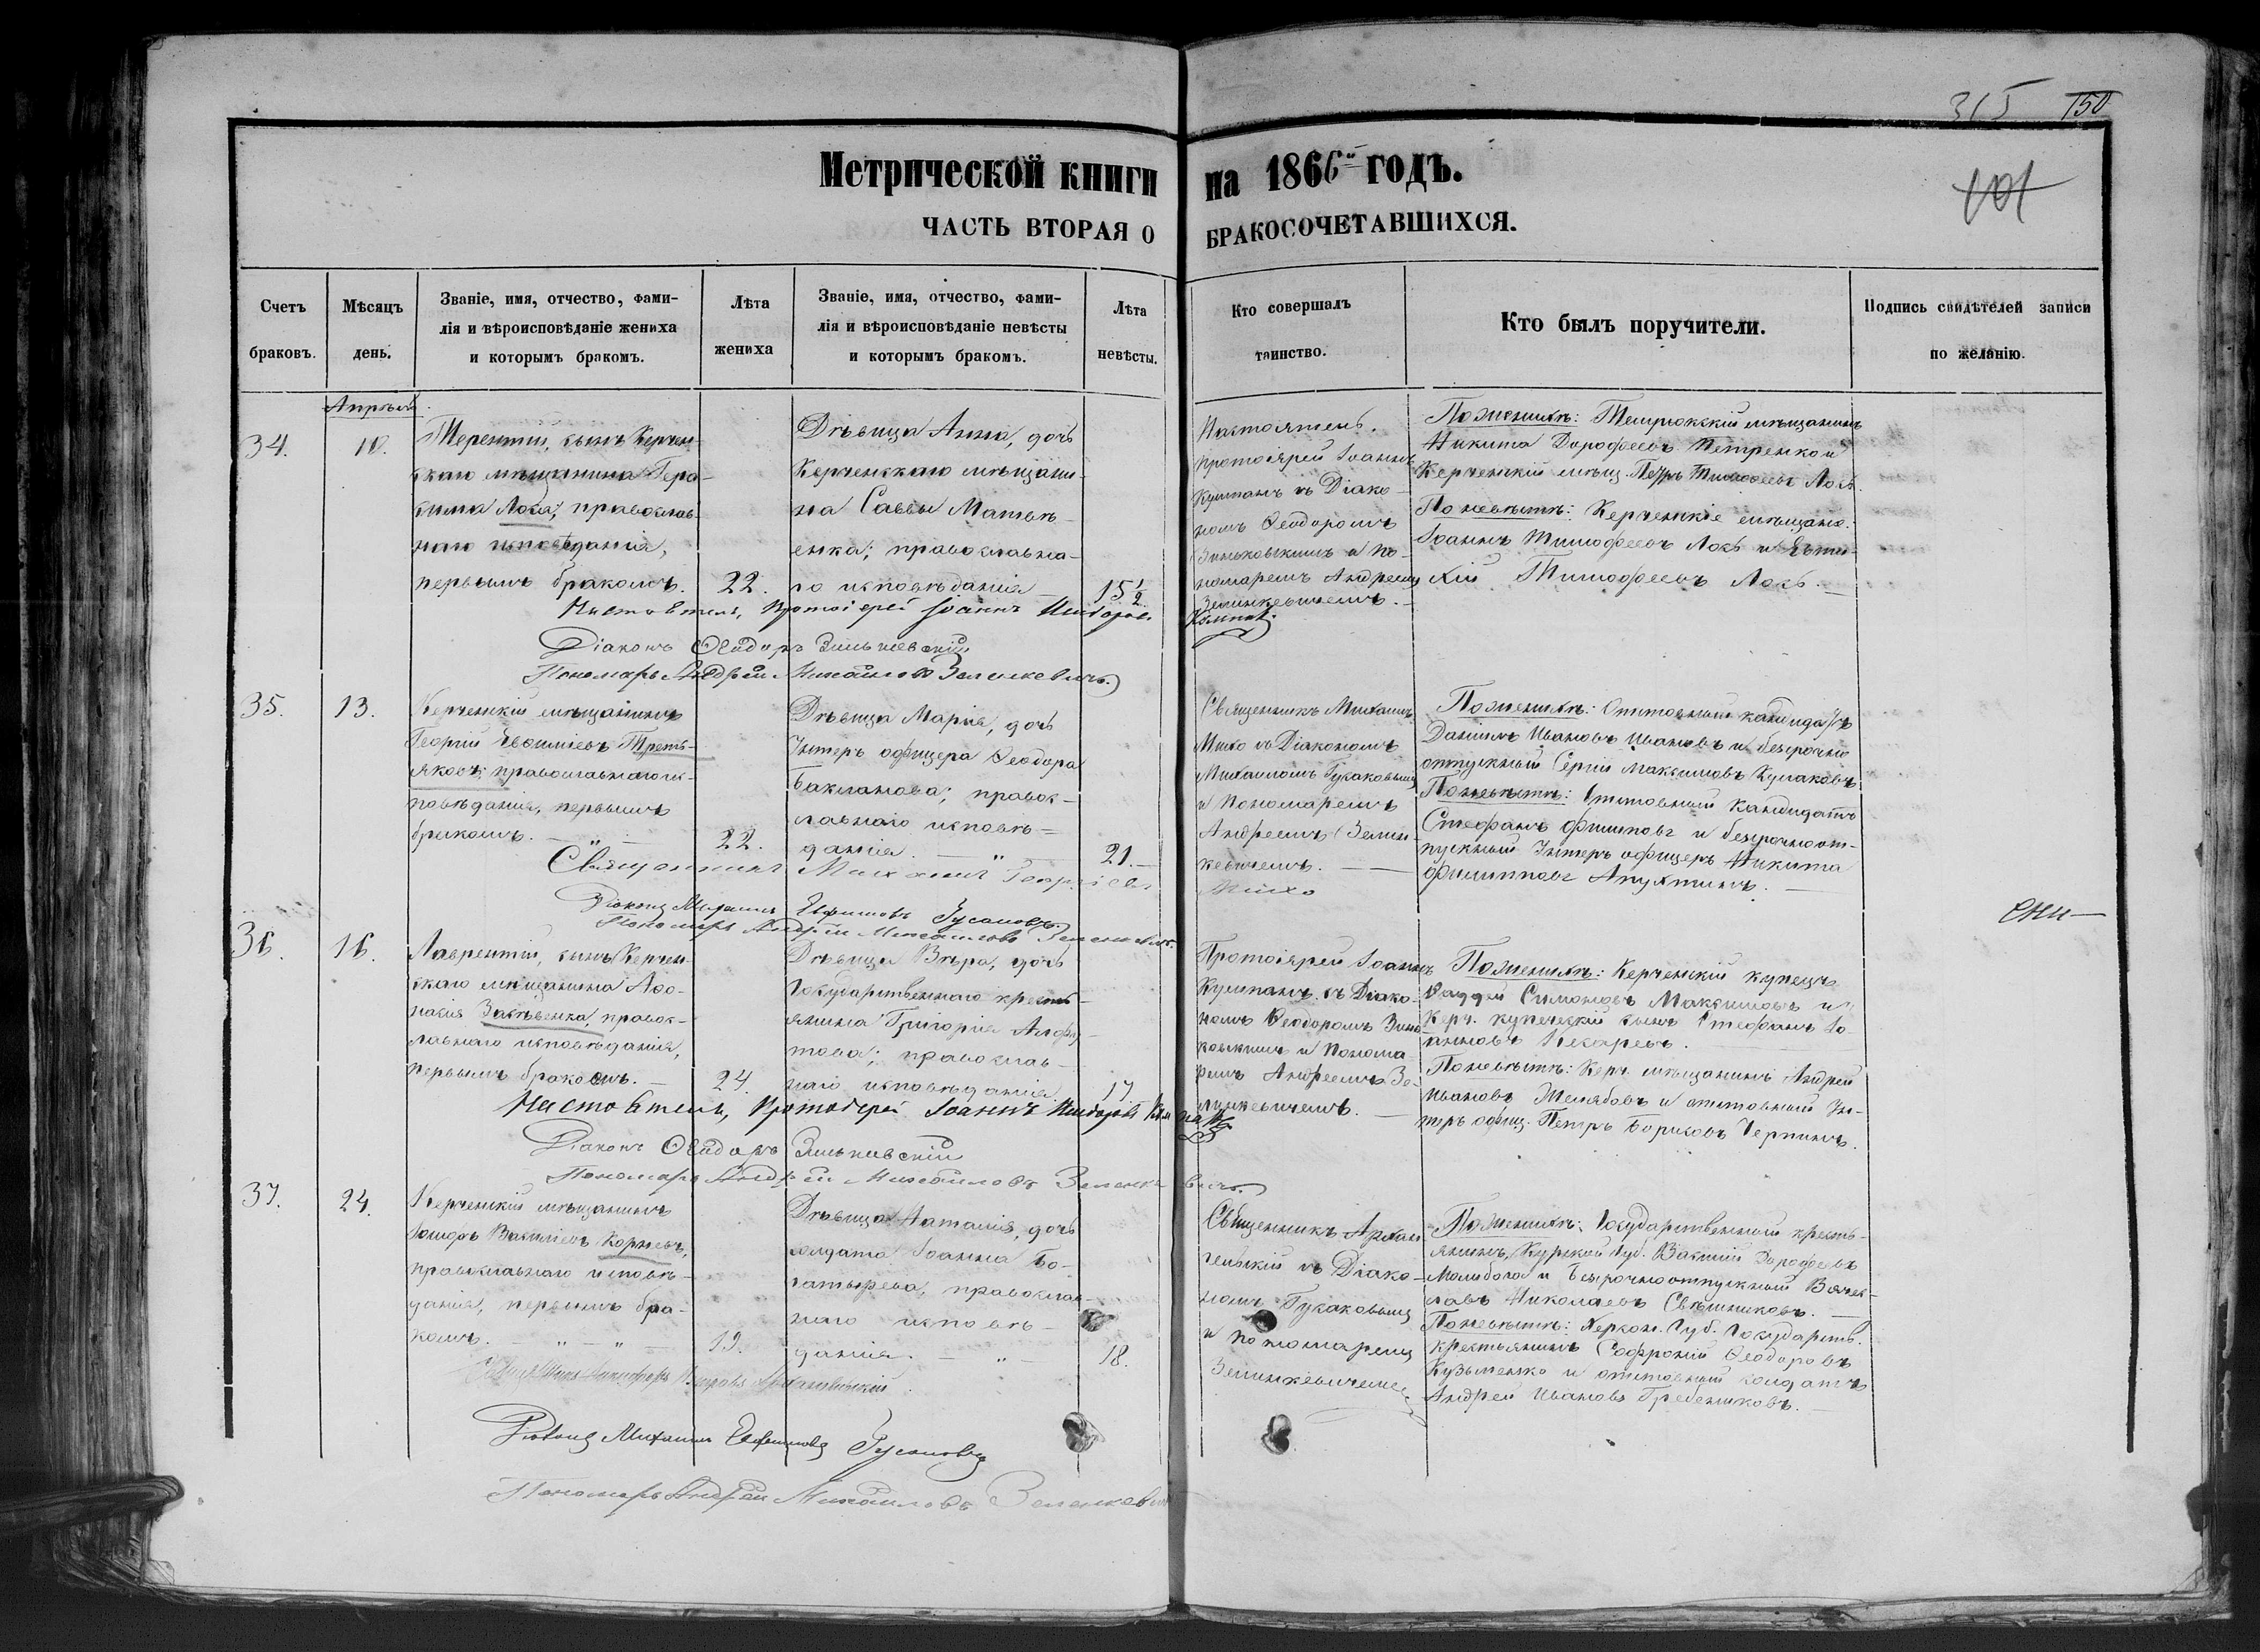 315 150
Метрической книги на 1866й годъ.
101
ЧАСТЬ ВТОРАЯ О БРАКОСОЧЕТАВШИХСЯ.
Счетъ
браковъ.
Мѣсяцъ
день.
Званіе, имя, отчество, фами-
лія и вѣроисповѣданіе жениха
и которымъ бракомъ.
Лѣта
жениха
Званіе, имя, отчество, фами-
лія и вѣроисповѣданіе невѣсты
и которымъ бракомъ.
Лѣта
невѣсты.
Кто совершалъ
таинство.
Кто былъ поручители.
Подпись свидѣтелей записи
по желанію.
Апрѣль.
34.
10.
Терентій, сынъ Керчен-
скаго мѣщанина Гера-
сима Лося, православ-
наго исповѣданія,
первымъ бракомъ.
22.
Дѣвица Анна, дочь
Керченскаго мѣщани-
на Саввы Матвѣ-
енка; православна-
го исповѣданія
15 1/2
Настоятель,
Протоіерей Іоаннъ
Кумпанъ съ Діако-
номъ Ѳеодоромъ
Зиньковскимъ и по-
номаремъ Андреемъ
Зелинкевичемъ.
По женихѣ: Темрюкскій мѣщанинъ
Никита Дорофеевъ Петренко и
Керченскій мѣщ. Петръ Тимофеевъ Лось.
По невѣстѣ: Керченскіе мѣщане:
Іоаннъ Тимофеевъ Лось и Евти-
хій Тимофеевъ Лось.
Настоятель, Протоіерей Іоаннъ Исидоровъ Кумпанъ.
Діаконъ Ѳеодоръ Зиньковскій
Пономарь Андрей Михайловъ Зелинкевичъ.
35.
13.
Керченскій мѣщанинъ
Георгій Евѳиміевъ Треть-
яковъ; православнаго ис-
повѣданія, первымъ
бракомъ. — " —
22.
Дѣвица Марія, дочь
Унтеръ офицера Ѳеодора
Бакланова; правос-
лавнаго исповѣ-
данія. — " —
21.
Священникъ Михаилъ
Михо съ Діакономъ
Михаиломъ Гусаковымъ
и Пономаремъ
Андреемъ Зелин-
кевичемъ.
По женихѣ: Отставный кандидатъ
Даніилъ Ивановъ Ивановъ и безсрочно
отпускный Сергій Максимовъ Кулаковъ
По невѣстѣ: Отставный кандидатъ
Стефанъ Филиповъ и безсрочноот-
пускный Унтеръ офицеръ Никита
Филипповъ Апухтинъ.
Священникъ Михаилъ Георгіевъ Михо
Діаконъ Михаилъ Евфимовъ Гусаковъ.
Пономарь Андрей Михайловъ Зелинкевичъ.
36.
16.
Лаврентій, сынъ Керчен-
скаго мѣщанина Аѳо-
насія Засѣвенка, правос-
лавнаго исповѣданія,
первымъ бракомъ.
24.
Дѣвица Вѣра, дочь
Государственнаго кресть-
янина Григорія
православ-
наго исповѣданія.
17.
Протоіерей Іоаннъ
Кумпанъ съ Діако-
номъ Ѳеодоромъ Зинь-
ковскимъ и Понома-
ремъ Андреемъ Зе-
линкевичемъ.
По женихѣ: Керченскій купецъ
Ѳаддей Симоновъ Максимовъ и
Керч. купеческій сынъ Стефанъ Іо-
анновъ Пекаревъ.
По невѣстѣ: Керч. мѣщанинъ Андрей
Ивановъ Желябовъ и отставный Ун-
теръ офиц. Петръ Борисовъ
Настоятель, Протоіерей Іоаннъ Исидоровъ Кумпанъ
Діаконъ Ѳеодоръ Зиньковскій
Пономарь Андрей Михайловъ Зелинкевичъ.
37.
24.
Керченскій мѣщанинъ
Іосифъ Василіевъ Корневъ,
православнаго исповѣ-
данія, первымъ бра-
комъ. — " — " —
19.
Дѣвица Наталія, дочь
солдата Іоанна Бо-
гатырева, православ-
наго исповѣ-
данія. — " —
18.
Священникъ Архан-
гельскій съ Діако-
номъ Гусаковымъ
и пономаремъ
Зелинкевичемъ
По женихѣ: Государственный кресть-
янинъ, Курской Губ. Василій Дорофеевъ
Молибога и безсрочноотпускный Вячес-
лавъ Николаевъ Свѣшниковъ.
По невѣстѣ: Херсон. Губ. Государств.
крестьянинъ Софроній Ѳеодоровъ
Кузьменко и отставный солдатъ
Андрей Ивановъ Гребенниковъ.
Діаконъ Михаилъ Евфимовъ Гусаковъ
Пономарь Андрей Михайловъ Зелинкевичъ